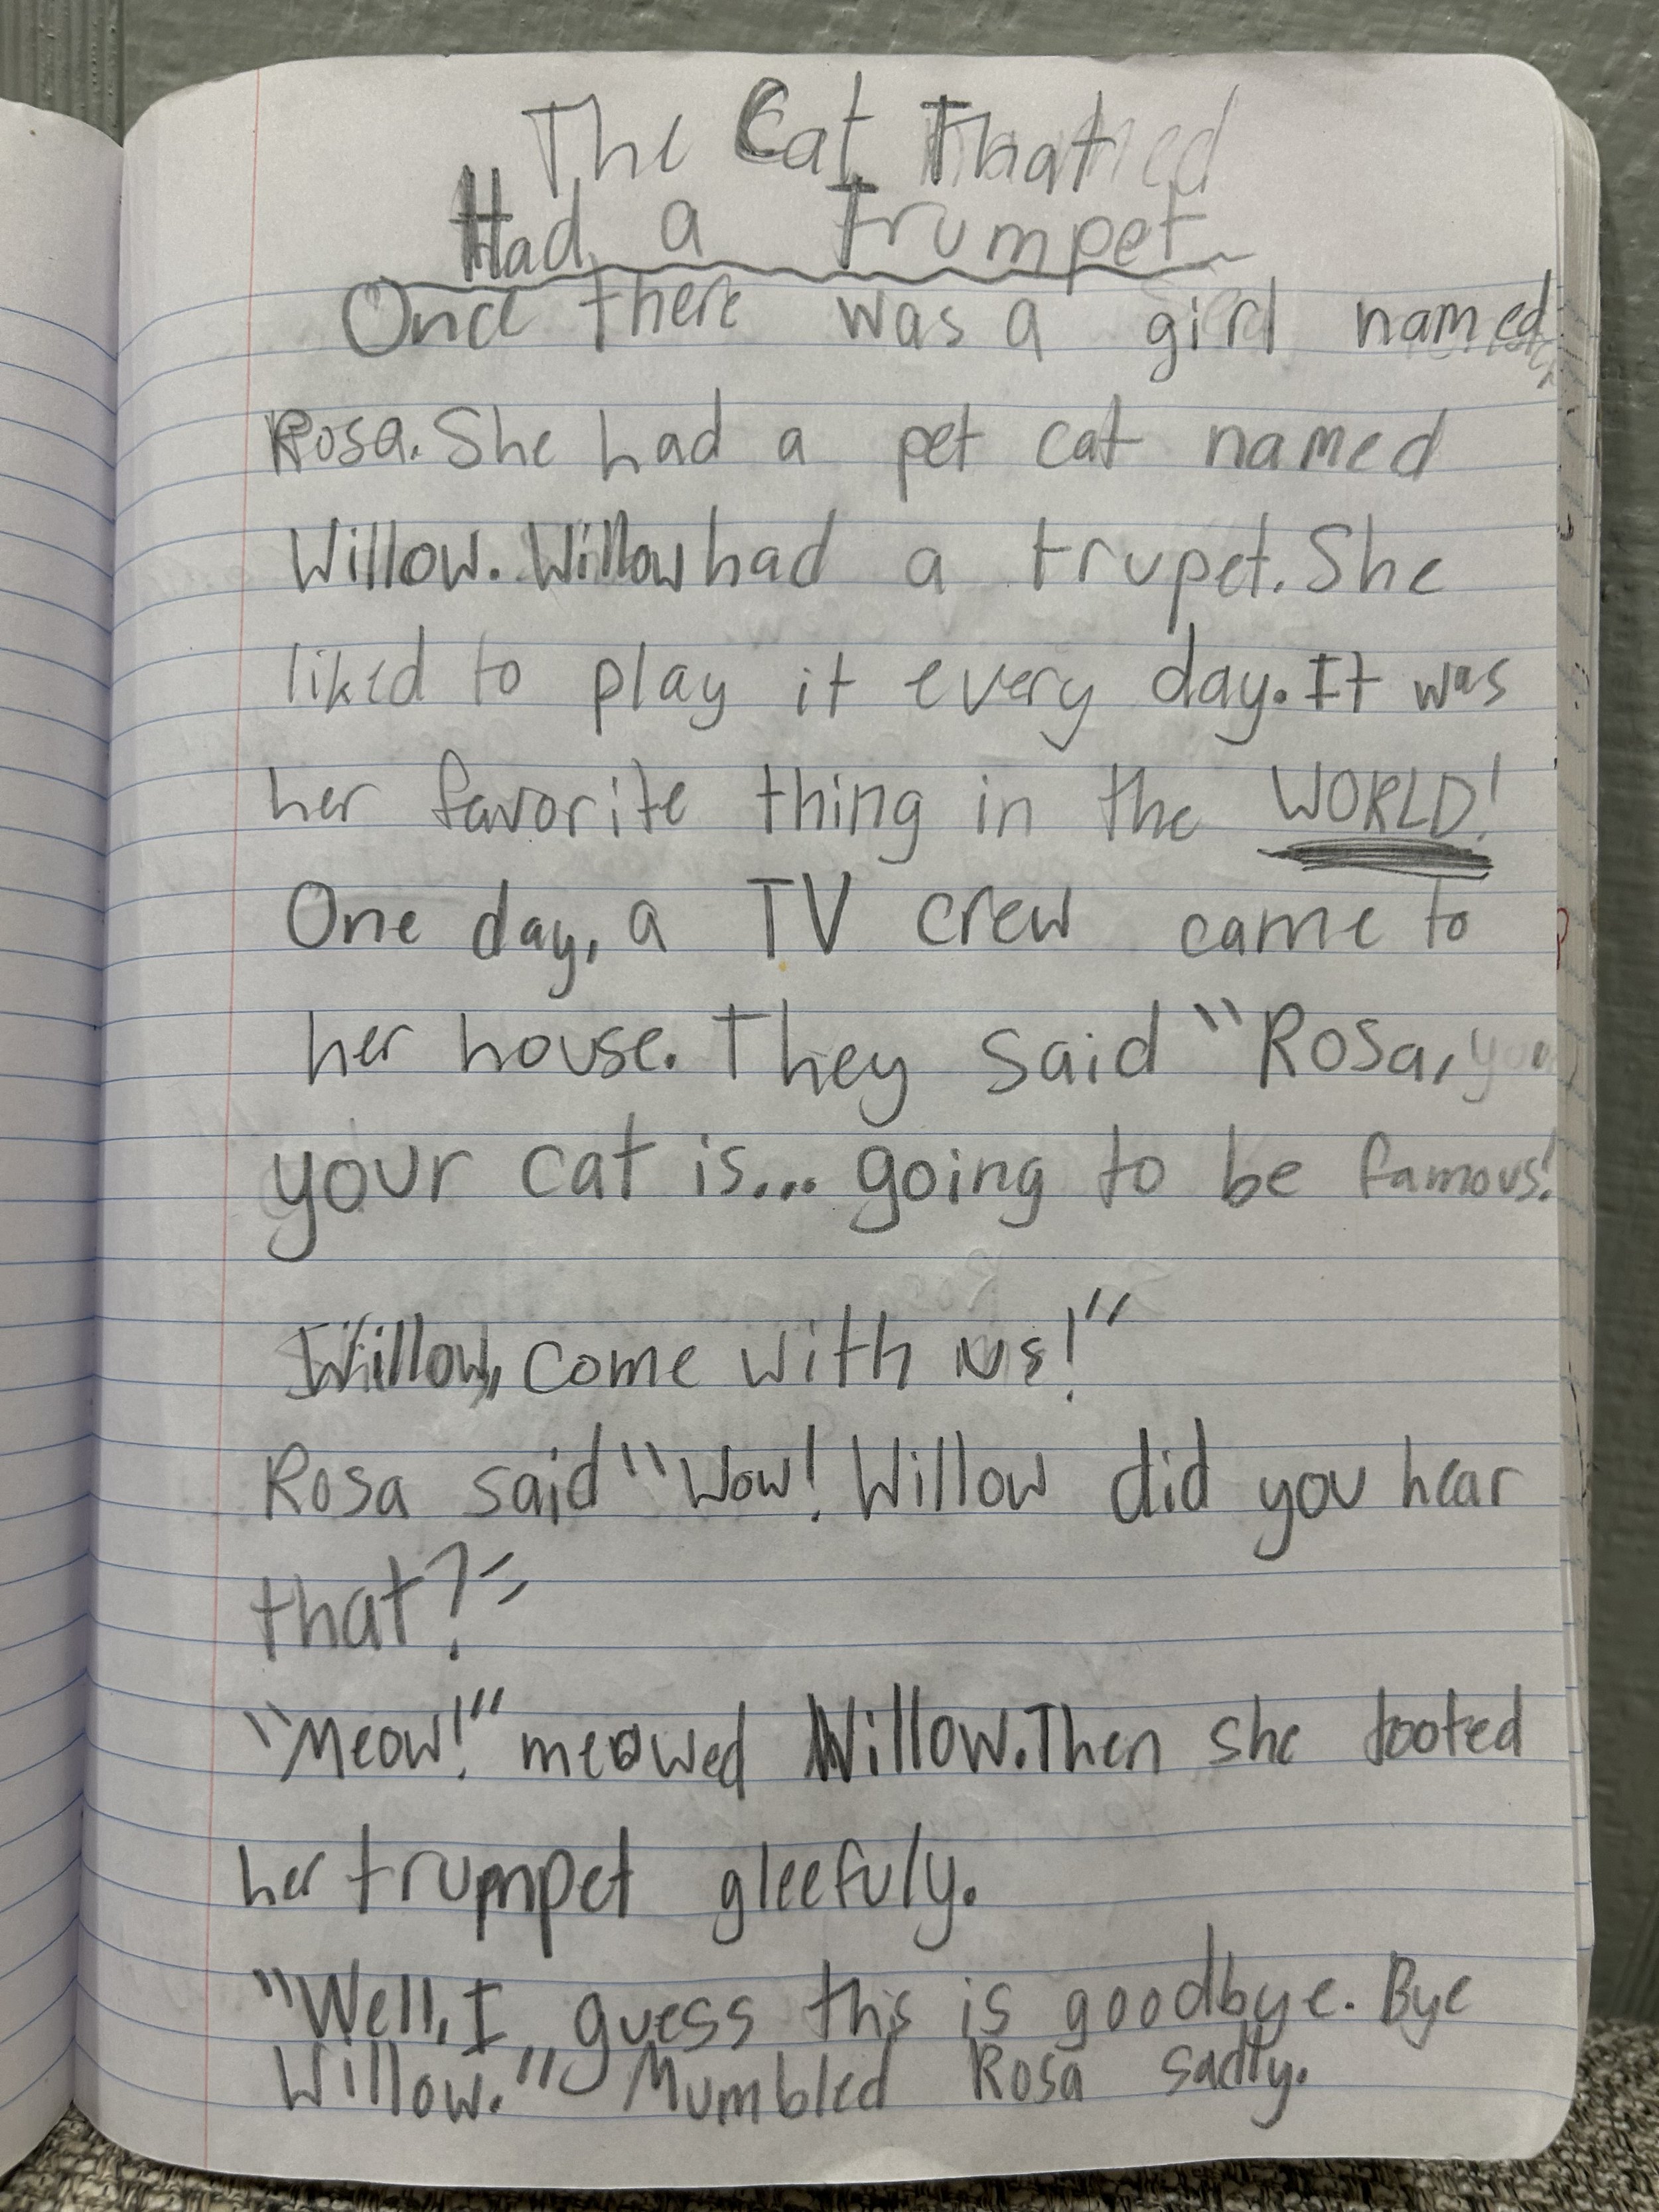 The Cat That
Had a Trumpet
Once there was a girl named
Rosa. She had a pet cat named
Willow. Willow had a trupet. She
liked to play it every day. It was
her favorite thing in the WORLD!
One day, a TV crew came to
her house. They said "Rosa,
your cat is... going to be famous!
Willow, come with us!"
Rosa said "Wow! Willow did you hear
that?"
"Meow!" meowed Willow. Then she tooted
her trumpet gleefuly.
"Well, I guess this is goodbye. Bye
Willow." Mumbled Rosa sadly.